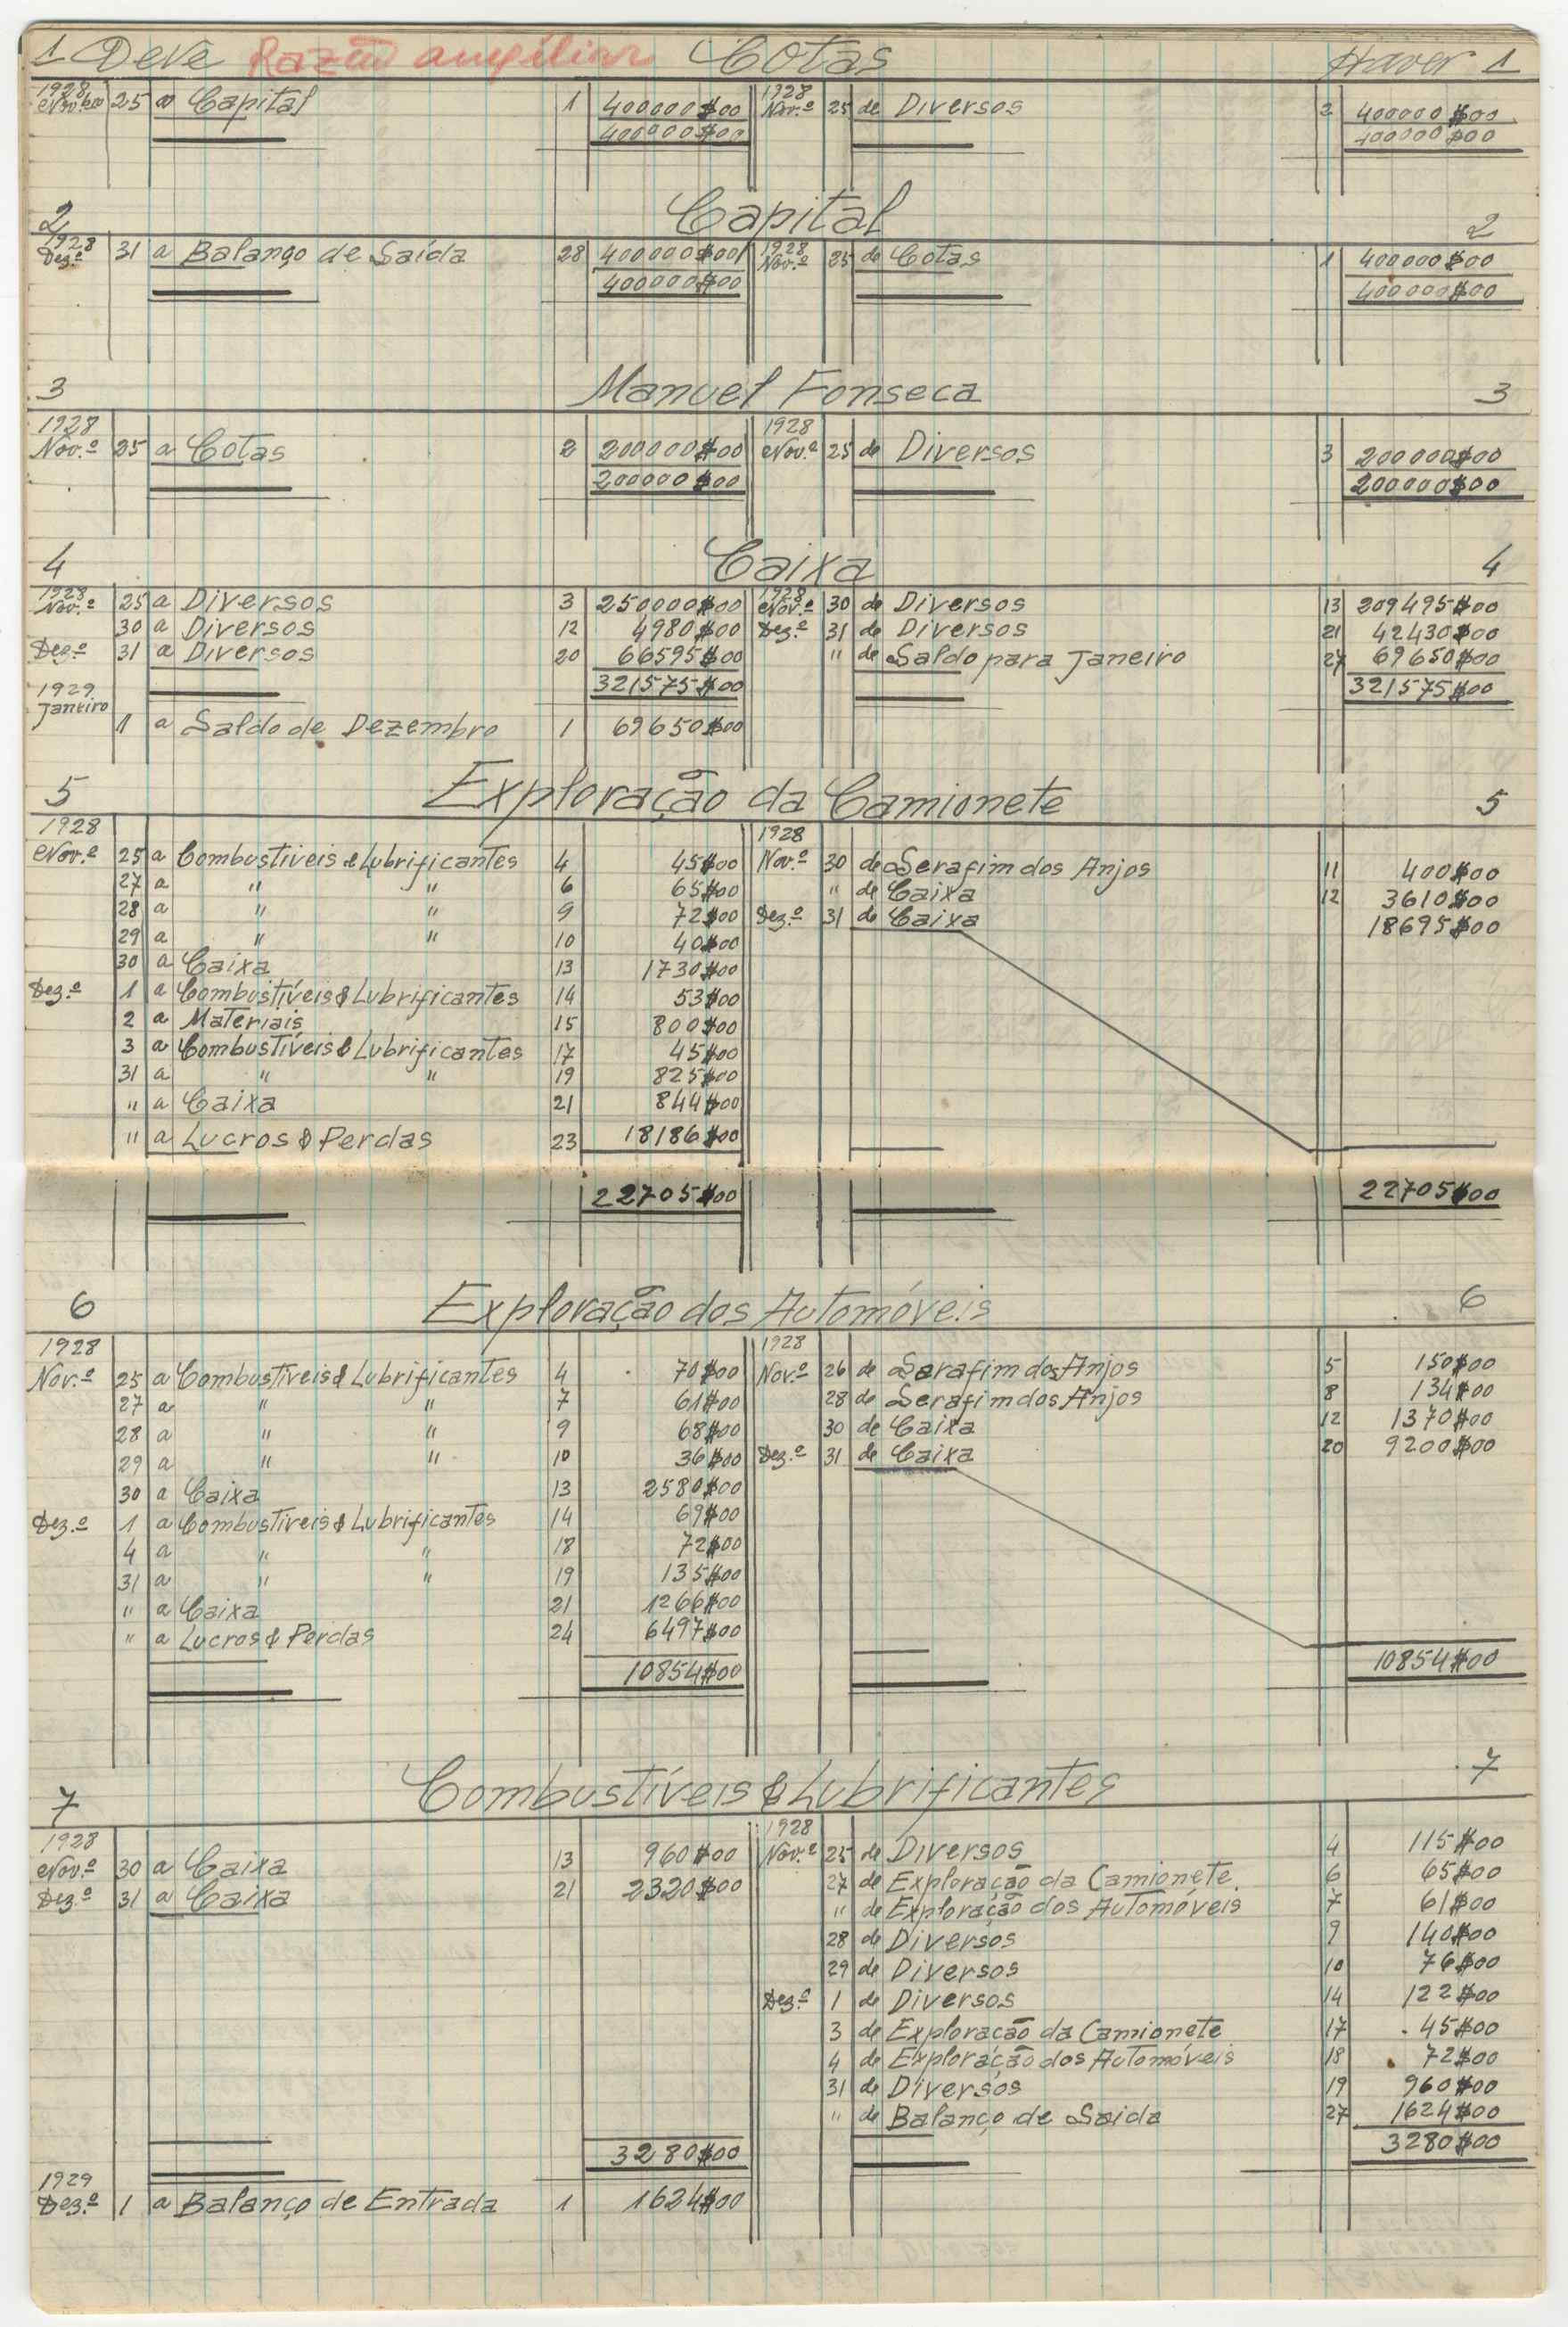 1 Deve Razão auxiliar Cotas Haver 1
1928 1928
Novbro 25 a Capital 1 400000$00 Nov.º 25 de Diversos 2 400000$00
400000$00 400000$00
Capital
2 2
1928 1928
Dez.º 31 a Balanço de Saída 28 400000$00 Nov.º 25 de Cotas 1 400000$00
400000$00 400000$00
3 Manuel Fonseca 3
1928 1928
Nov.º 25 a Cotas 2 200000$00 Nov.º 25 de Diversos 3 200000$00
200000$00 200000$00
4 Caixa 4
1928 1928
Nov.º 25 a Diversos 3 250000$00 Nov.º 30 de Diversos 13 209495$00
30 a Diversos 12 4980$00 Dez.º 31 de Diversos 21 42430$00
Dez.º 31 a Diversos 20 66595$00 " de Saldo para Janeiro 27 69650$00
321575$00 321575$00
1929
Janeiro
1 a Saldo de Dezembro 1 69650$00
5 Exploração da Camionete 5
1928 1928
Nov.º 25 a Combustíveis & Lubrificantes 4 45$00 Nov.º 30 de Serafim dos Anjos 11 400$00
27 a " " 6 65$00 " de Caixa 12 3610$00
28 a " " 9 72$00 Dez.º 31 de Caixa 18695$00
29 a " " 10 40$00
30 a Caixa 13 1730$00
Dez.º 1 a Combustíveis & Lubrificantes 14 53$00
2 a Materiais 15 800$00
3 a Combustíveis & Lubrificantes 17 45$00
31 a " " 19 825$00
" a Caixa 21 844$00
" a Lucros & Perdas 23 18186$00
22705$00 22705$00
6 Exploração dos Automóveis 6
1928 1928
Nov.º 25 a Combustíveis & Lubrificantes 4 70$00 Nov.º 26 de Serafim dos Anjos 5 150$00
27 a " " 7 61$00 28 de Serafim dos Anjos 8 134$00
28 a " " 9 68$00 30 de Caixa 12 1370$00
29 a " " 10 36$00 Dez.º 31 de Caixa 20 9200$00
30 a Caixa 13 2580$00
Dez.º 1 a Combustíveis & Lubrificantes 14 69$00
4 a " " 18 72$00
31 a " " 19 135$00
" a Caixa 21 1266$00
" a Lucros & Perdas 24 6497$00
10854$00 10854$00
7 Combustíveis & Lubrificantes 7
1928 1928
Nov.º 30 a Caixa 13 960$00 Nov.º 25 de Diversos 4 115$00
Dez.º 31 a Caixa 21 2320$00 27 de Exploração da Camionete. 6 65$00
" de Exploração dos Automóveis 7 61$00
28 de Diversos 9 140$00
29 de Diversos 10 76$00
Dez.º 1 de Diversos 14 122$00
3 de Exploração da Camionete 17 45$00
4 de Exploração dos Automóveis 18 72$00
31 de Diversos 19 960$00
" de Balanço de Saida 27 1624$00
3280$00 3280$00
1929
Dez.º 1 a Balanço de Entrada 1 1624$00